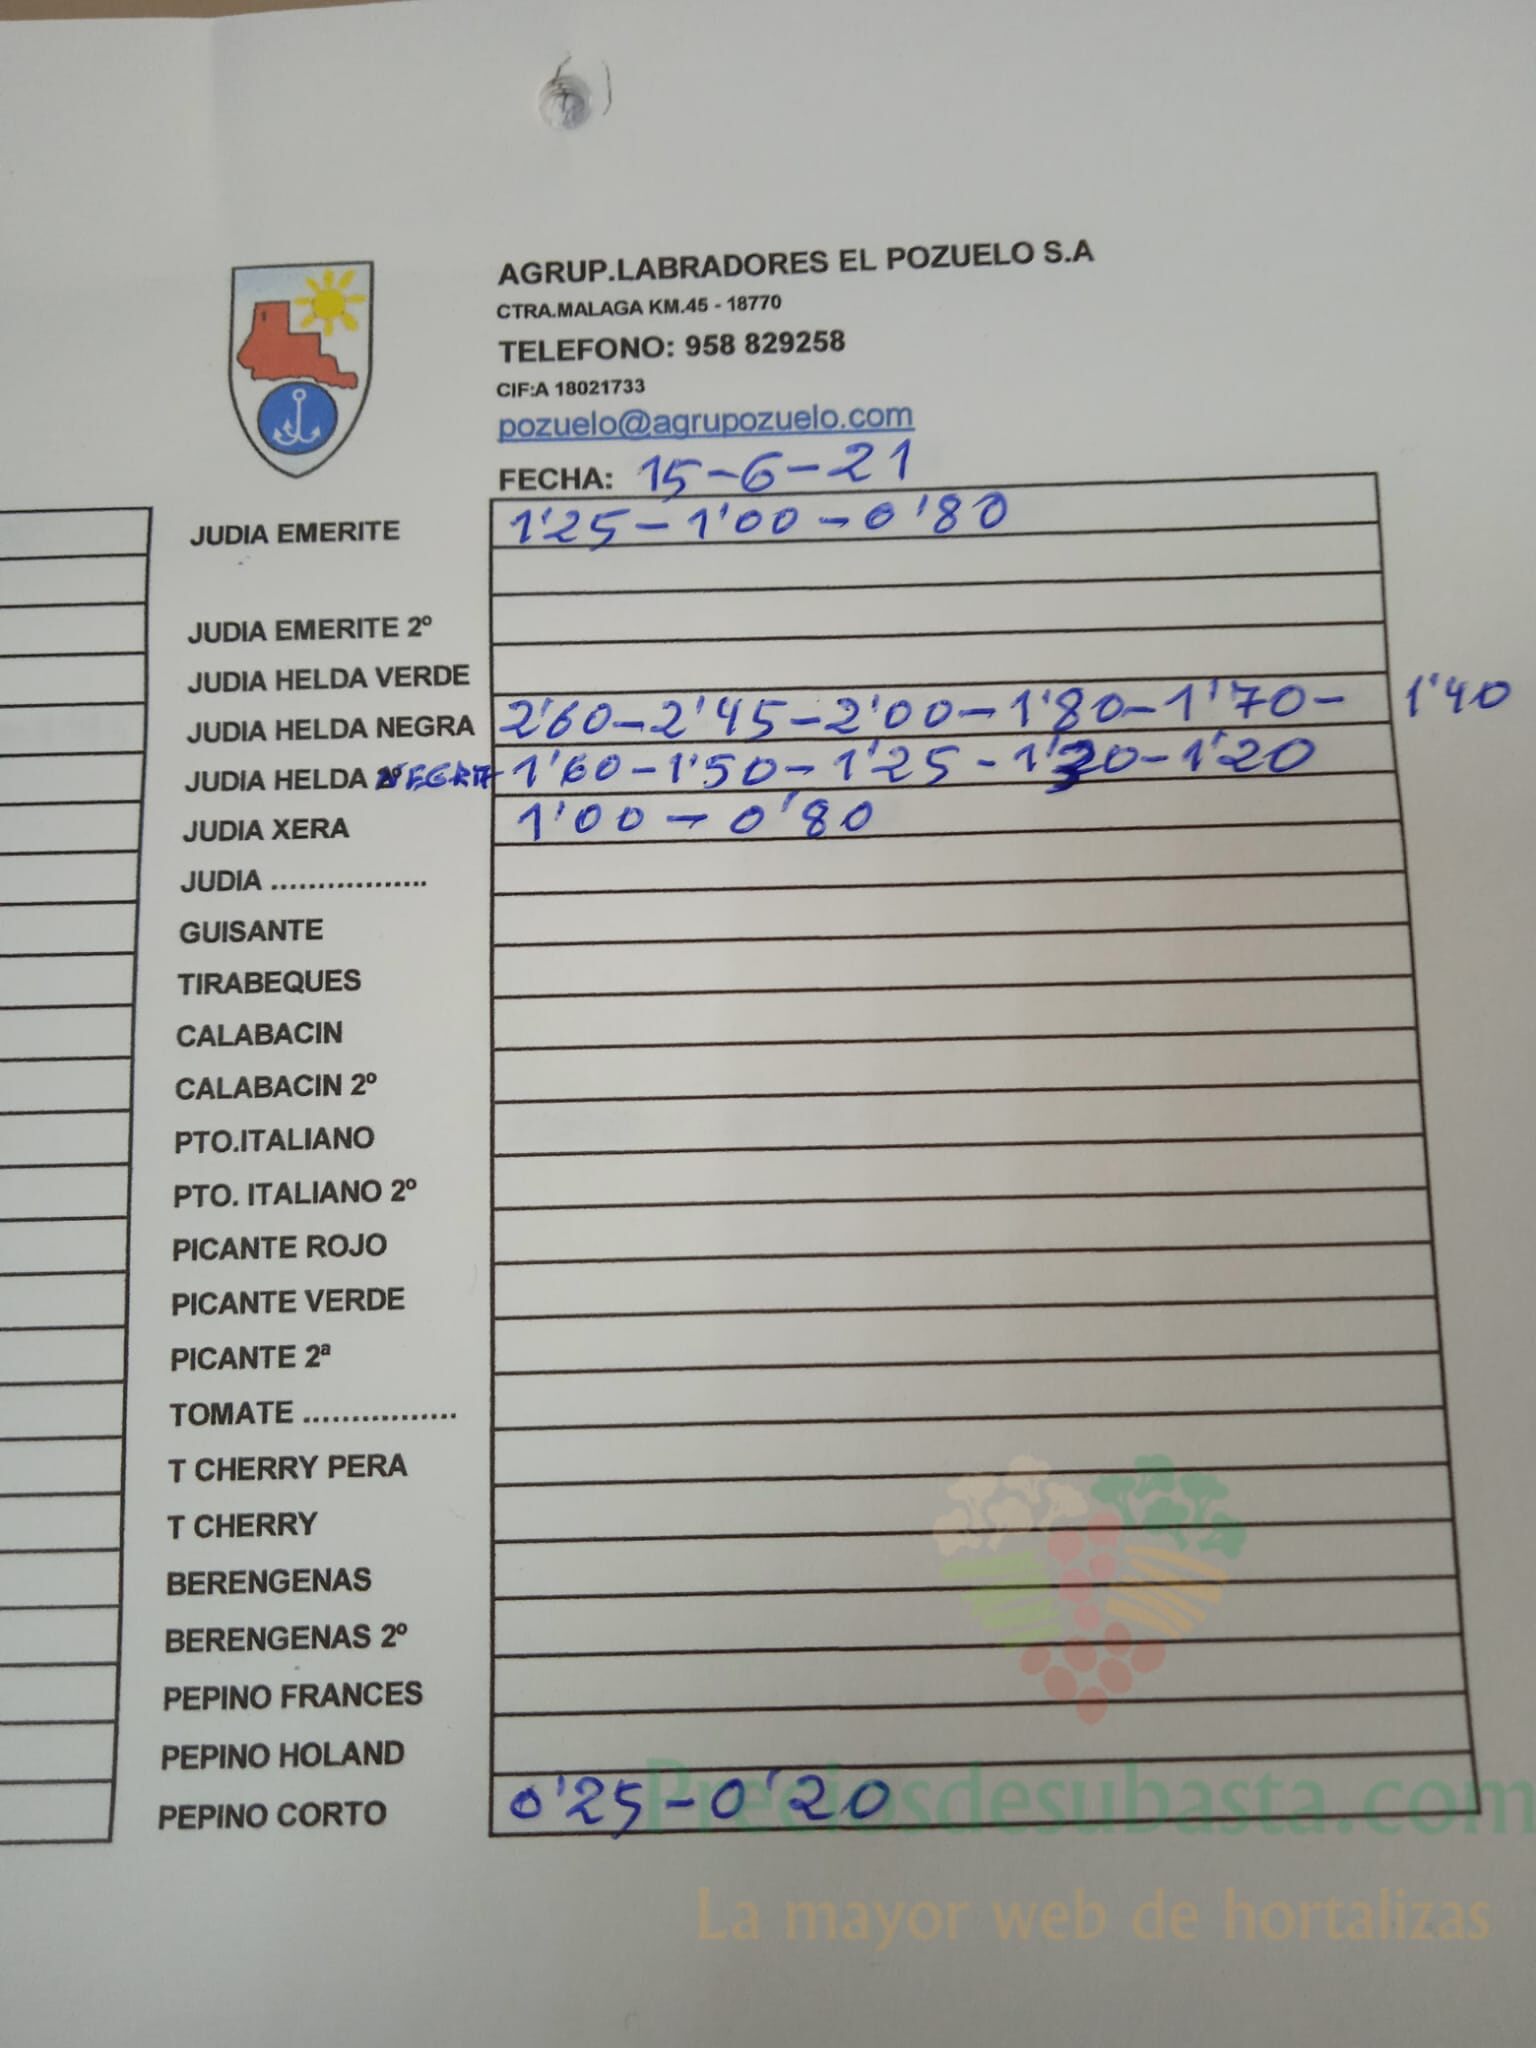 AGRUP.LABRADORES EL POZUELO S.A
CTRA.MALAGA KM.45 - 18770
TELEFONO: 958 829258
CIF:A 18021733
pozuelo@agrupozuelo.com
FECHA: 15-6-21
JUDIA EMERITE 1'25-1'00-0'80
JUDIA EMERITE 2º
JUDIA HELDA VERDE
JUDIA HELDA NEGRA 2'60-2'45-2'00-1'80-1'70- 1'40
JUDIA HELDA NEGRA 1'60-1'50-1'25-1'30-1'20
JUDIA XERA 1'00-0'80
JUDIA .................
GUISANTE
TIRABEQUES
CALABACIN
CALABACIN 2º
PTO.ITALIANO
PTO. ITALIANO 2º
PICANTE ROJO
PICANTE VERDE
PICANTE 2ª
TOMATE .................
T CHERRY PERA
T CHERRY
BERENGENAS
BERENGENAS 2º
PEPINO FRANCES
PEPINO HOLAND
PEPINO CORTO 0'25-0'20
Preciosdesubasta.com
La mayor web de hortalizas